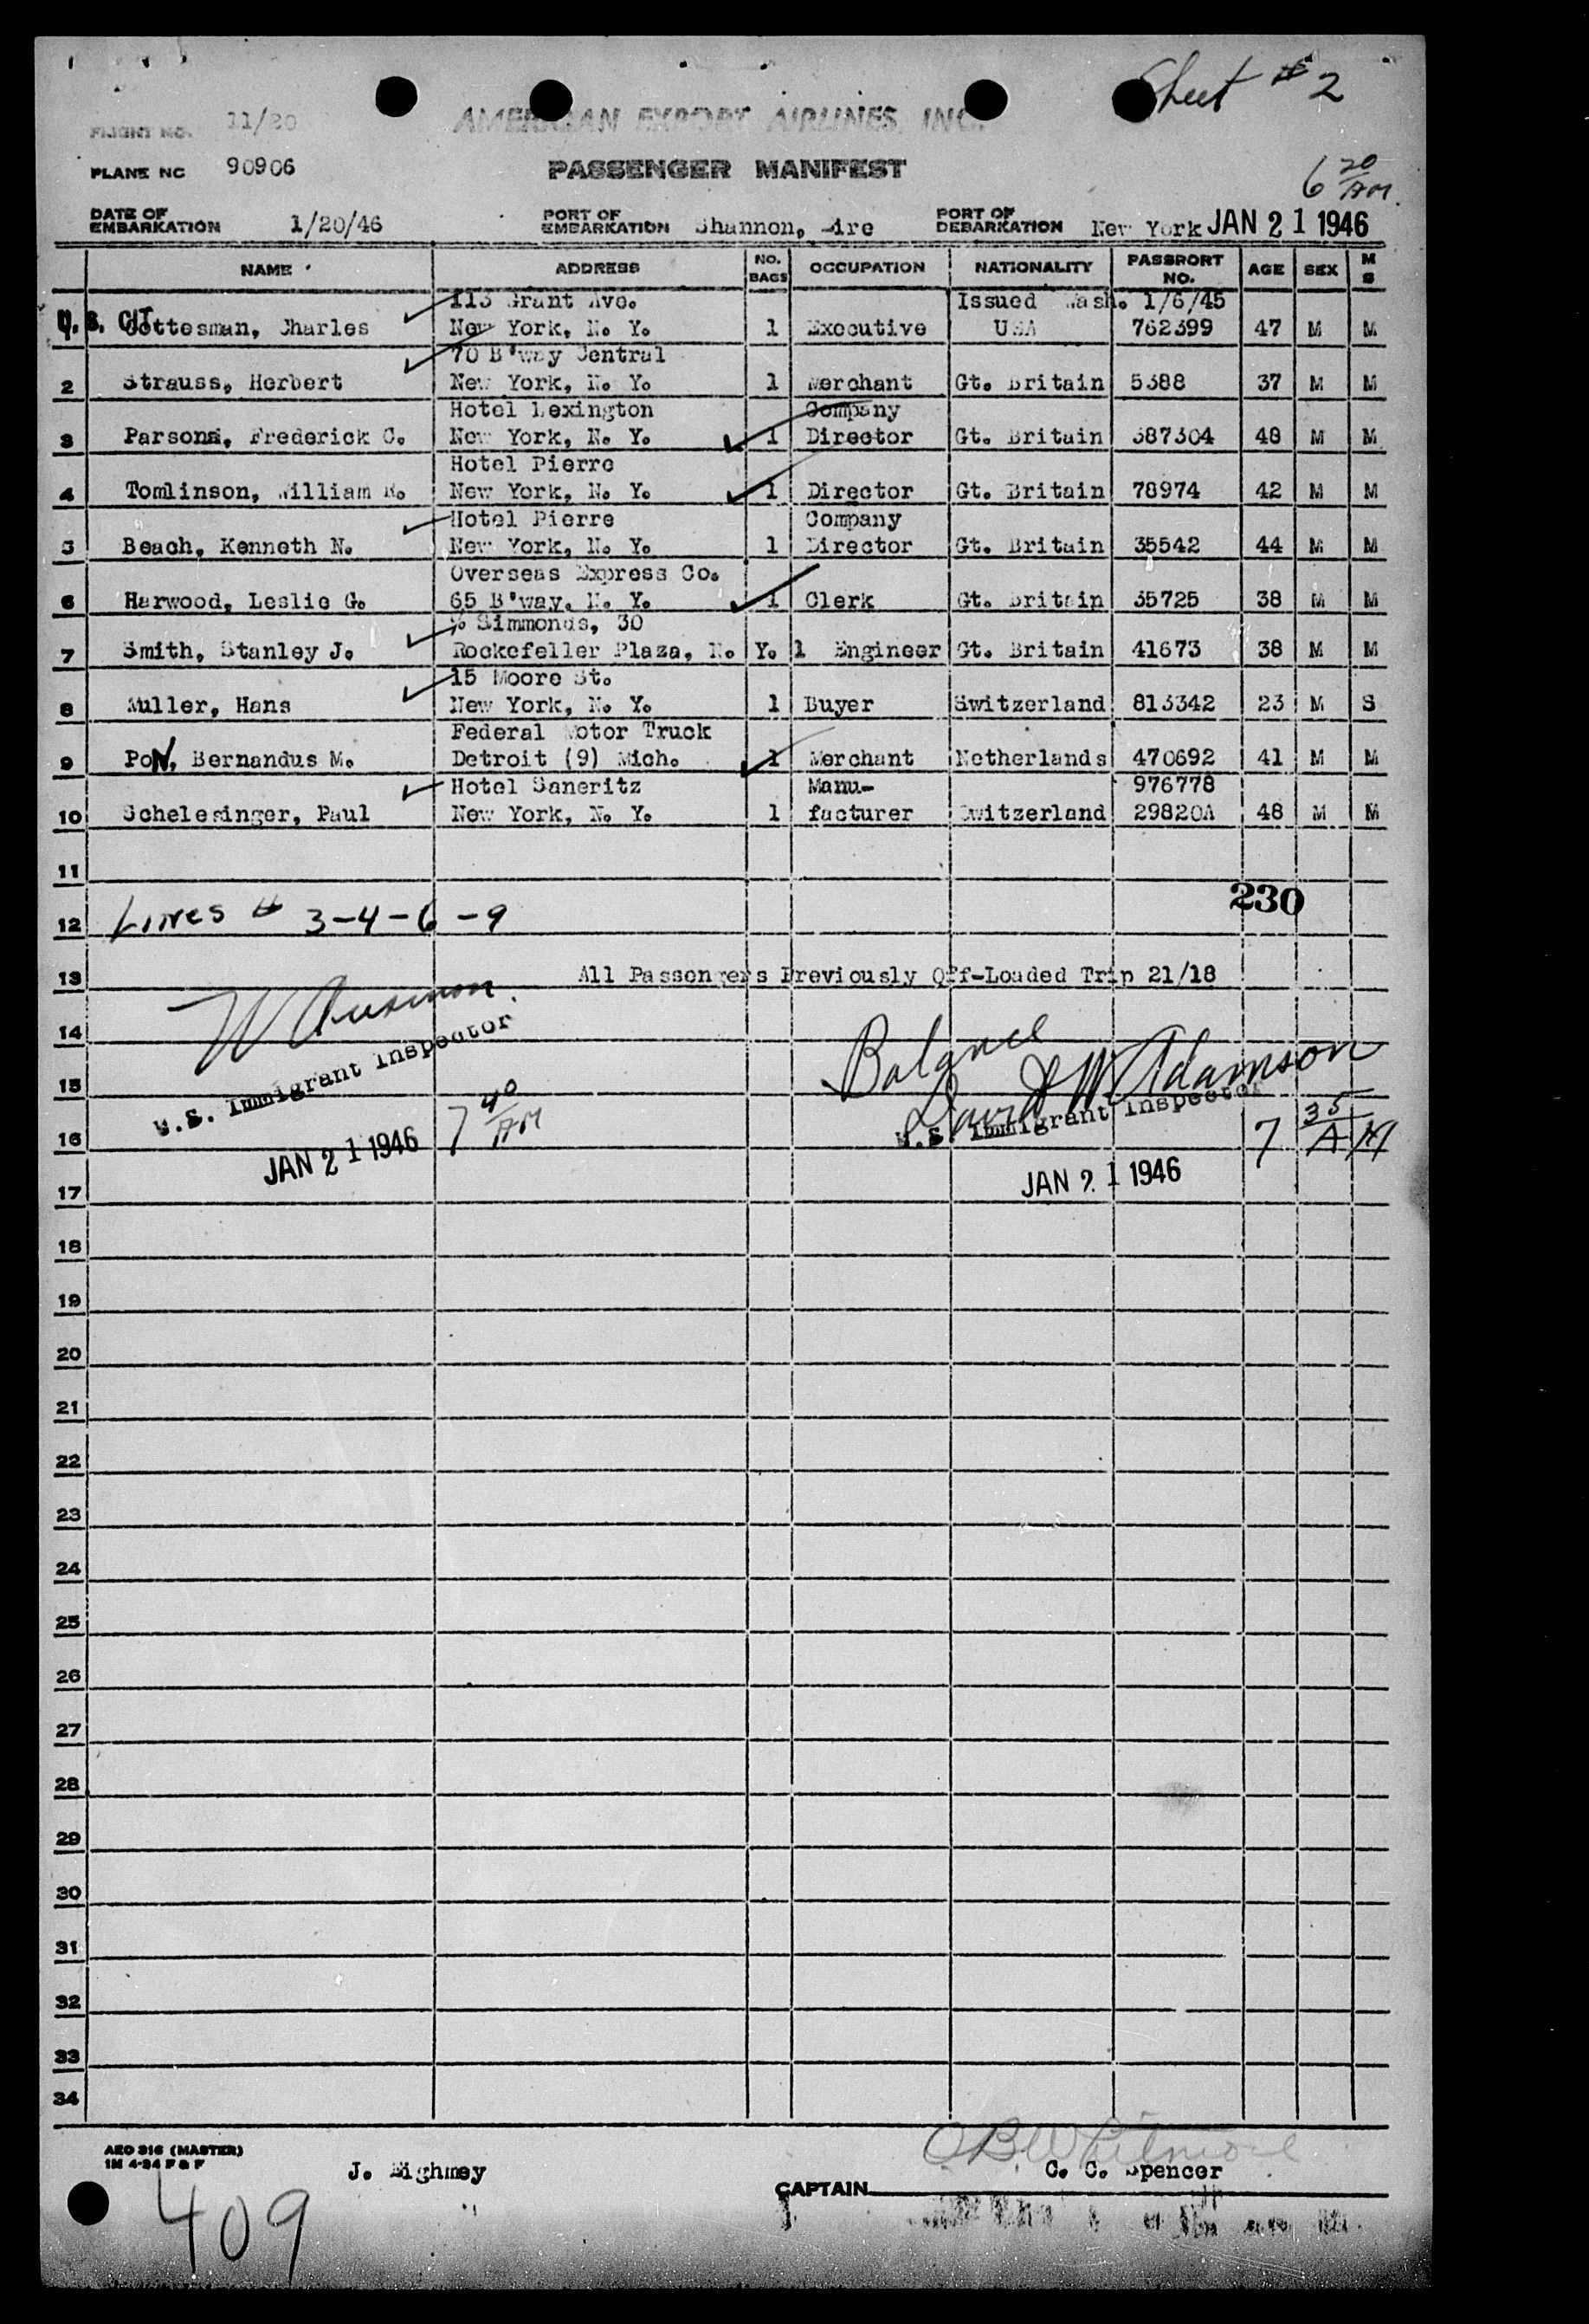 Sheet # 2
FLIGHT NO. 11/20
AMERICAN EXPORT AIRLINES, INC.
PLANE NC 90906
PASSENGER MANIFEST
6 20/AM.
DATE OF EMBARKATION 1/20/46 PORT OF EMBARKATION Shannon, Eire PORT OF DEBARKATION New York JAN 21 1946
NAME ADDRESS NO. BAGS OCCUPATION NATIONALITY PASSPORT NO. AGE SEX M S
113 Grant Ave. Issued Wash. 1/6/45
U. S. CIT Gottesman, Charles New York, N. Y. 1 Executive USA 762399 47 M M
70 B'way Central
2 Strauss, Herbert New York, N. Y. 1 Merchant Gt. Britain 5388 37 M M
Hotel Lexington Company
3 Parsons, Frederick C. New York, N. Y. 1 Director Gt. Britain 387304 48 M M
Hotel Pierre
4 Tomlinson, William R. New York, N. Y. 1 Director Gt. Britain 78974 42 M M
Hotel Pierre Company
5 Beach, Kenneth N. New York, N. Y. 1 Director Gt. Britain 35542 44 M M
Overseas Express Co.
6 Harwood, Leslie G. 65 B'way. N. Y. 1 Clerk Gt. Britain 35725 38 M M
% Simmonds, 30
7 Smith, Stanley J. Rockefeller Plaza, N. Y. 1 Engineer Gt. Britain 41673 38 M M
15 Moore St.
8 Muller, Hans New York, N. Y. 1 Buyer Switzerland 813342 23 M S
Federal Motor Truck
9 PoN, Bernandus M. Detroit (9) Mich. 1 Merchant Netherlands 470692 41 M M
Hotel Saneritz Manu- 976778
10 Schelesinger, Paul New York, N. Y. 1 facturer Switzerland 29820A 48 M M
11
230
12 Lines # 3-4-6-9
13 All Passengers Previously Off-Loaded Trip 21/18
14
Balance
15 David W Adamson
U.S. Immigrant Inspector 7 40/AM U.S. Immigrant Inspector 7 35/AM
16
JAN 21 1946 JAN 21 1946
17
18
19
20
21
22
23
24
25
26
27
28
29
30
31
32
33
34
AEO 316 (MASTER)
1M 4-24 F & F
J. Eighmey
C. C. Spencer
CAPTAIN
409